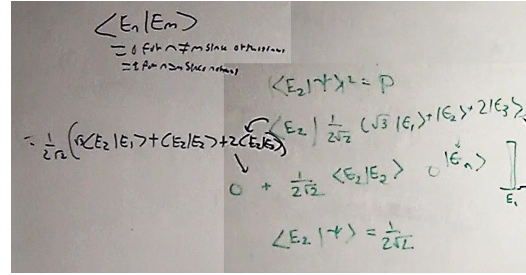 ⟨Eₙ|Eₘ⟩
= 0 for n≠m since
= 1 for n=m since
⟨E₂|ψ⟩² = P
⟨E₂| 1/2√2 (√3 |E₁⟩ + |E₂⟩ + 2|E₃⟩)
= 1/2√2 (√3⟨E₂|E₁⟩ + ⟨E₂|E₂⟩ + 2⟨E₂|E₃⟩)
0 + 1/2√2 ⟨E₂|E₂⟩ 0
|Eₙ⟩
E₁
⟨E₂|ψ⟩ = 1/2√2